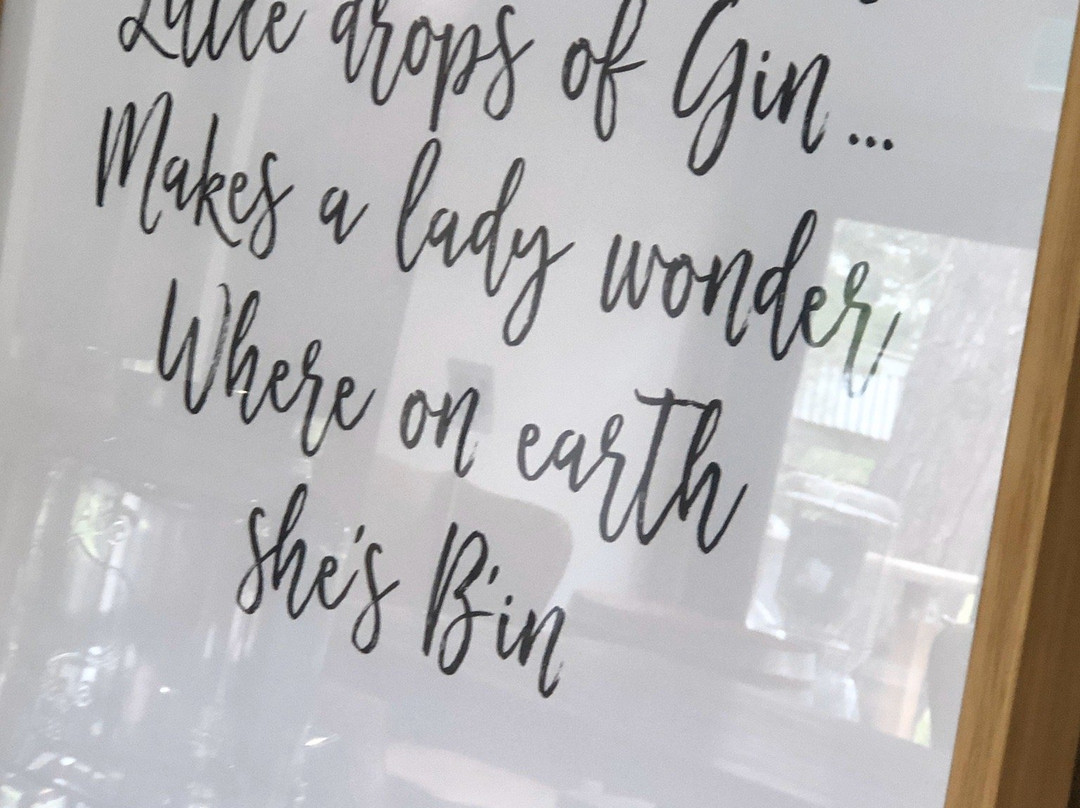 Little drops of Gin...
Makes a lady wonder
Where on earth
she's Bin